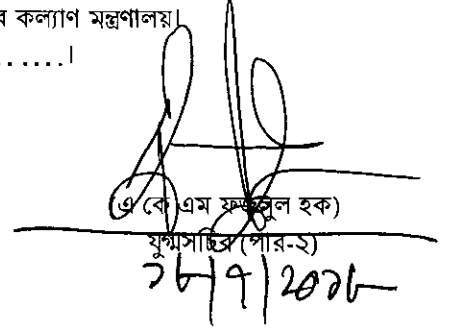 র কল্যাণ মন্ত্রণালয়।
......।
(এ কে এম ফজলুল হক)
যুগ্মসচিব (পার-২)
১৮|৭|২০১৮